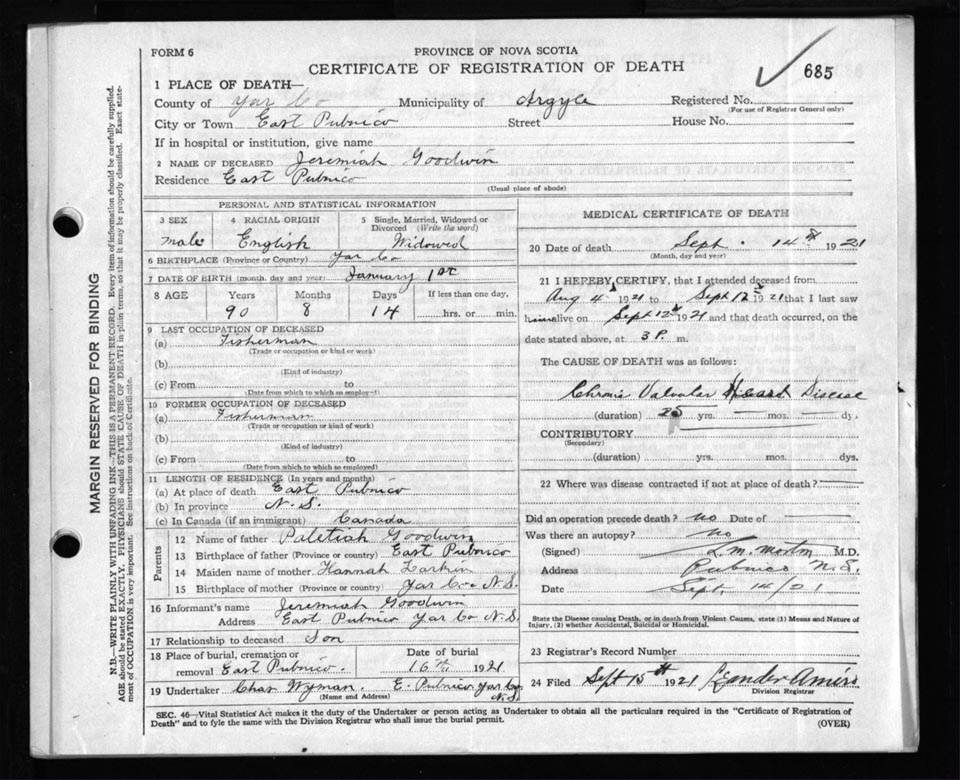 FORM 6
PROVINCE OF NOVA SCOTIA
CERTIFICATE OF REGISTRATION OF DEATH
685
1 PLACE OF DEATH—
County of Yar Co Municipality of Argyle Registered No.
(For use of Registrar General only)
City or Town East Pubnico Street House No.
If in hospital or institution, give name
2 NAME OF DECEASED Jeremiah Goodwin
Residence East Pubnico
(Usual place of abode)
PERSONAL AND STATISTICAL INFORMATION
3 SEX 4 RACIAL ORIGIN 5 Single, Married, Widowed or Divorced (Write the word)
Male English Widowed
6 BIRTHPLACE (Province or Country) Yar Co
7 DATE OF BIRTH (month, day and year) January 1st
8 AGE Years Months Days If less than one day,
90 8 14 hrs. or min.
9 LAST OCCUPATION OF DECEASED
(a) Fisherman
(Trade or occupation or kind or work)
(b)
(Kind of industry)
(c) From to
(Date from which to which so employed)
10 FORMER OCCUPATION OF DECEASED
(a) Fisherman
(Trade or occupation or kind of work)
(b)
(Kind of industry)
(c) From to
(Date from which to which so employed)
11 LENGTH OF RESIDENCE (In years and months)
(a) At place of death East Pubnico
(b) In province N. S.
(c) In Canada (if an immigrant) Canada
Parents
12 Name of father Paletiah Goodwin
13 Birthplace of father (Province or country) East Pubnico
14 Maiden name of mother Hannah Larkin
15 Birthplace of mother (Province or country) Yar Co N.S.
16 Informant's name Jeremiah Goodwin
Address East Pubnico Yar Co N.S.
17 Relationship to deceased Son
18 Place of burial, cremation or removal East Pubnico. Date of burial 16th 1921
19 Undertaker Chas Wyman. E. Pubnico Yar Co N.S.
(Name and Address)
MEDICAL CERTIFICATE OF DEATH
20 Date of death Sept. 14th 1921
(Month, day and year)
21 I HEREBY CERTIFY, that I attended deceased from
Aug 4 1921 to Sept 12th 1921 that I last saw
him alive on Sept 12th 1921 and that death occurred, on the
date stated above, at 3 P. m.
The CAUSE OF DEATH was as follows:
Chronic Valvular Heart Disease
(duration) 25 yrs. mos. dys.
CONTRIBUTORY
(Secondary)
(duration) yrs. mos. dys.
22 Where was disease contracted if not at place of death?
Did an operation precede death? no Date of
Was there an autopsy? no
(Signed) L.M. M.D.
Address Pubnico N.S.
Date Sept. 14/21
State the Disease causing Death, or in death from Violent Causes, state (1) Means and Nature of
Injury, (2) whether Accidental, Suicidal or Homicidal.
23 Registrar's Record Number
24 Filed Sept 15th 1921 Leander Amiro
Division Registrar
SEC. 46—Vital Statistics Act makes it the duty of the Undertaker or person acting as Undertaker to obtain all the particulars required in the "Certificate of Registration of
Death" and to fyle the same with the Division Registrar who shall issue the burial permit.
(OVER)
MARGIN RESERVED FOR BINDING
N.B.—WRITE PLAINLY WITH UNFADING INK—THIS IS A PERMANENT RECORD. Every item of information should be carefully supplied.
AGE should be stated EXACTLY. PHYSICIANS should STATE CAUSE OF DEATH in plain terms, so that it may be properly classified. Exact statement of OCCUPATION is very important. See instructions on back of Certificate.